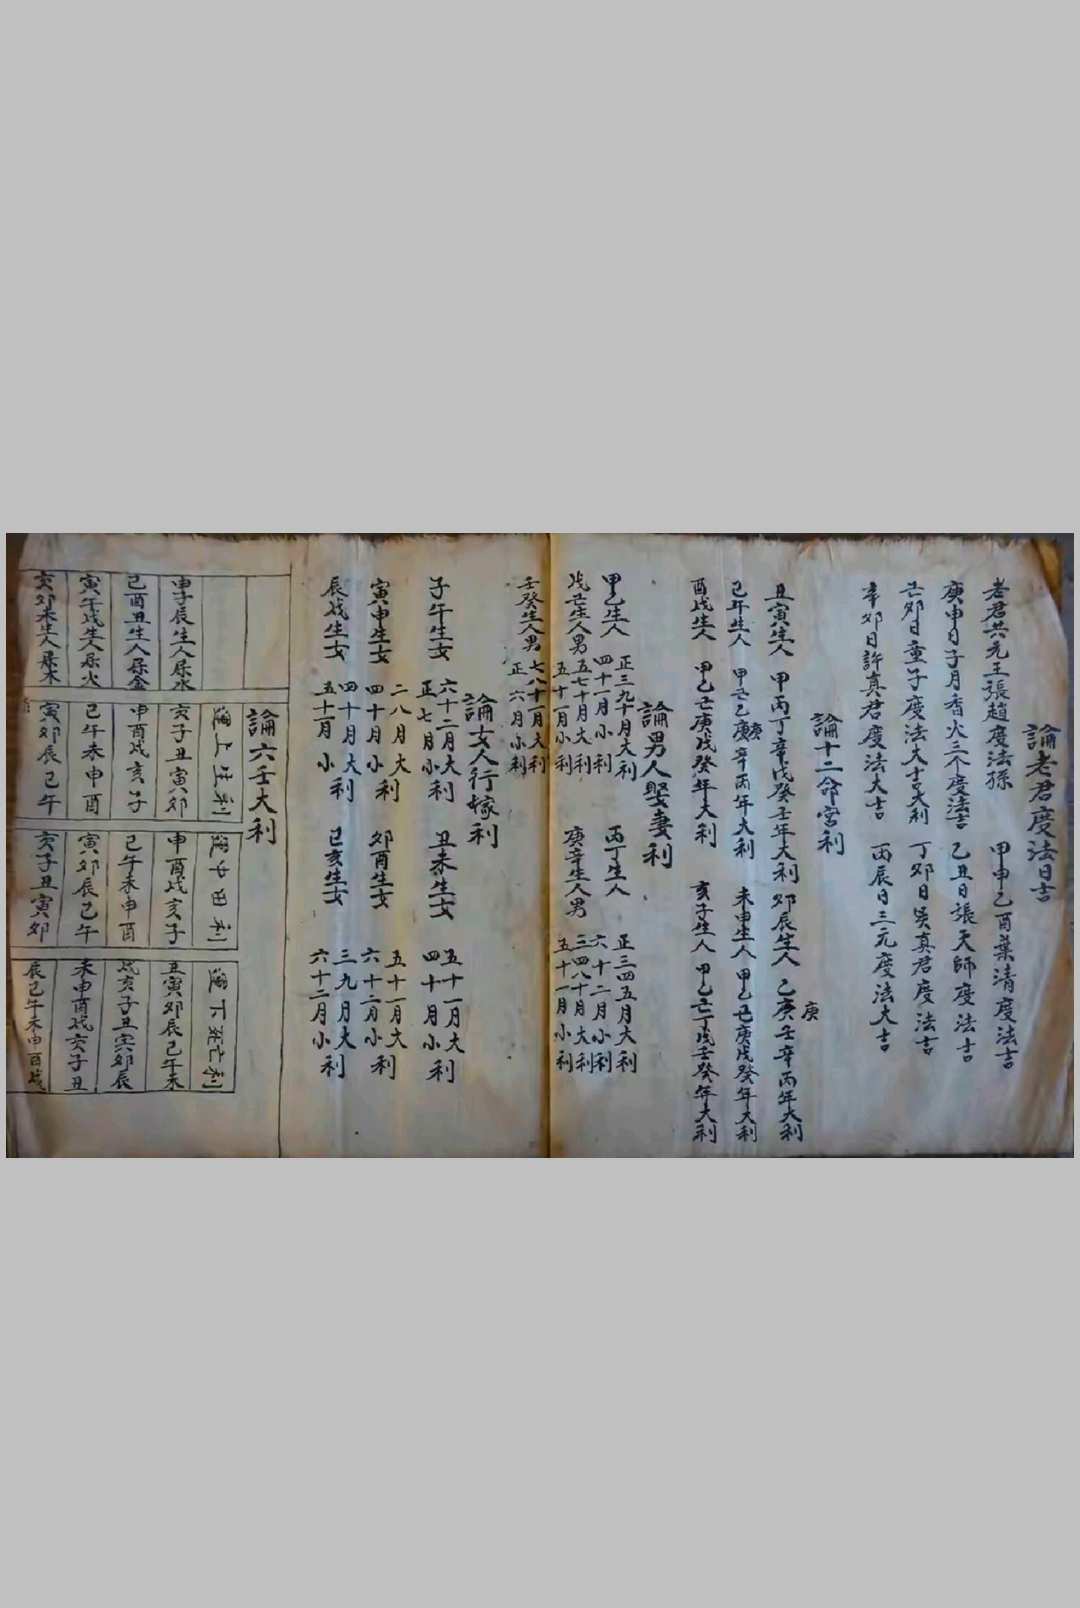 論老君度法日吉
老君共元王張趙度法孫 甲申乙酉葉清度法吉
庚申日子月香火三个度法吉 乙丑日張天師度法吉
亡卯日童子度法大吉大利 丁卯日吳真君度法吉
辛卯日許真君度法大吉 丙辰日三元度法大吉
論十二命宮利
丑寅生人 甲丙丁辛戊癸壬年大利 卯辰生人 乙庚壬辛丙年大利
庚
己午生人 甲亡己庚辛丙年大利 未申生人 甲乙己庚戊癸年大利
酉戌生人 甲乙亡庚戊癸年大利 亥子生人 甲乙亡丁戊壬癸年大利
論男人娶妻利
甲乙生人 正三九十月大利 四十一月小利 丙丁生人 正三四五月大利 六十二月小利
戊亡生人男 五七十月大利 五十一月小利 庚辛生人男 三四八十月大利 五十一月小利
壬癸生人男 七八十一月大利 正六月小利
論女人行嫁利
子午生女 六十二月大利 正七月小利 丑未生女 五十一月大利 四十月小利
寅申生女 二八月大利 四十月小利 卯酉生女 五十一月大利 六十二月小利
辰戌生女 四十月大利 五十一月小利 己亥生女 三九月大利 六十二月小利
論六壬大利
運上生利 運中田利 運下死亡利
申子辰生人屬水 亥子丑寅卯 申酉戌亥子 丑寅卯辰己午未
己酉丑生人屬金 申酉戌亥子 己午未申酉 戌亥子丑寅卯辰
寅午戌生人屬火 己午未申酉 寅卯辰己午 未申酉戌亥子丑
亥卯未生人屬木 寅卯辰己午 亥子丑寅卯 辰己午未申酉戌